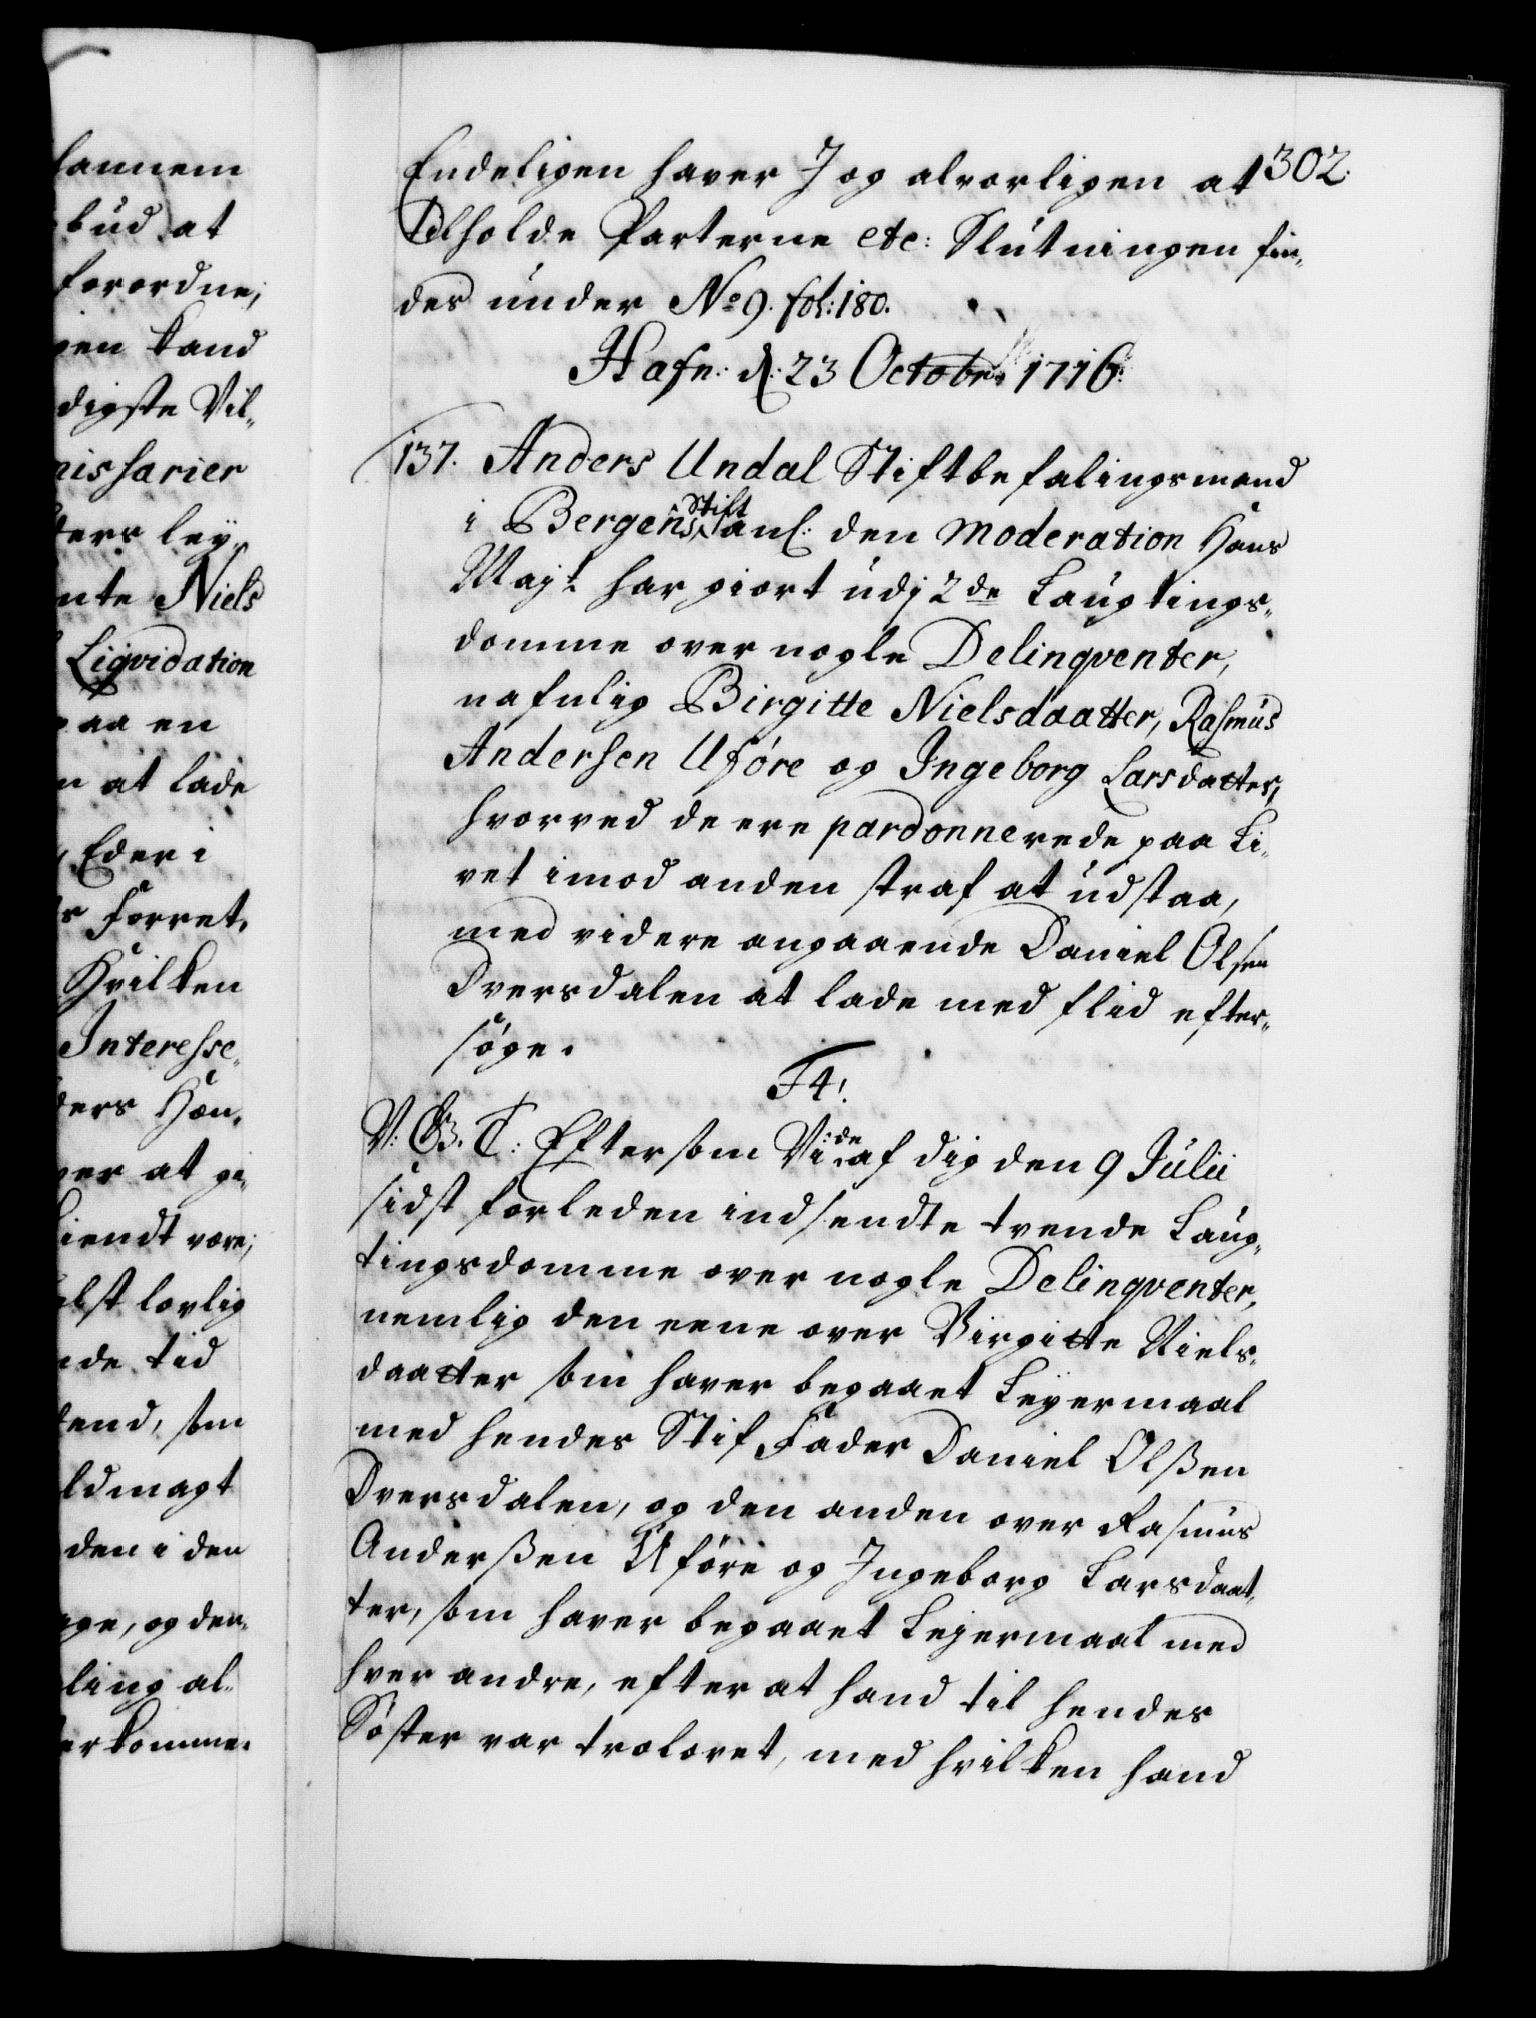 hannem
bud at
forordne,
gen kand
digste Vil¬
missarier
ders ley
nte Niels
Liqvidation
paa en
n at lade
Eder i
s Forret¬
Hvilken
Interesse¬
ders Hæn¬
ver at gi¬
kiendt være,
elst lovlig
nde tid
tend, som
ldmagt
den i den
age, og der¬
ling al¬
terkomme.
302.
Endeligen haver I og alvorligen at
tilholde Parterne etc: Slutningen fin¬
des under No 9. fol: 180.
Hafn: d: 23 Octobr: 1716.
137. Anders Undal Stiftbefalingsmand
i Bergens Stift anl: den Moderation Hans
Mayt har giort udj 2de Laugtings¬
domme over nogle Delinqventer,
nafnlig Birgitte Nielsdaatter, Rasmus
Andersen Uføre og Ingeborg Larsdatter,
hvorved de ere pardonnerede paa Li¬
vet imod anden straf at udstaa,
med videre angaaende Daniel Olsen
Dversdalen at lade med flid efter¬
søge.
F4!
V: G. T: Eftersom Vi: de af dig den 9 Julii
sidst forleden indsendte tvende Laug¬
tingsdomme over nogle Delinqventer,
nemlig den eene over Birgitte Niels¬
daatter som haver begaaet Leyermaal
med hendes Stif Fader Daniel Olßen
Dversdalen, og den anden over Rasmus
Anderßen Uføre og Ingeborg Larsdaat¬
ter, som haver begaaet Lejermaal med
hver andre, efter at hand til hendes
Søster var troloret, med hvilken hand